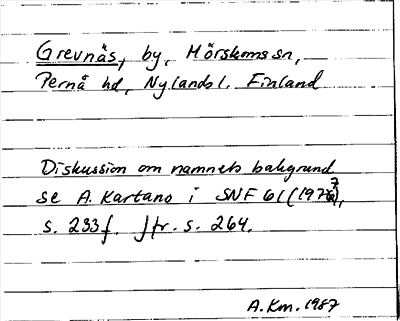 Grevnäs, by, Mörskoms sn,
Pernå hd, Nylands l. Finland
Diskussion om namnets bakgrund
se A. Kartano i SNF 61 (1977),
s. 233 f. Jfr. s. 264.
A.Km. 1987